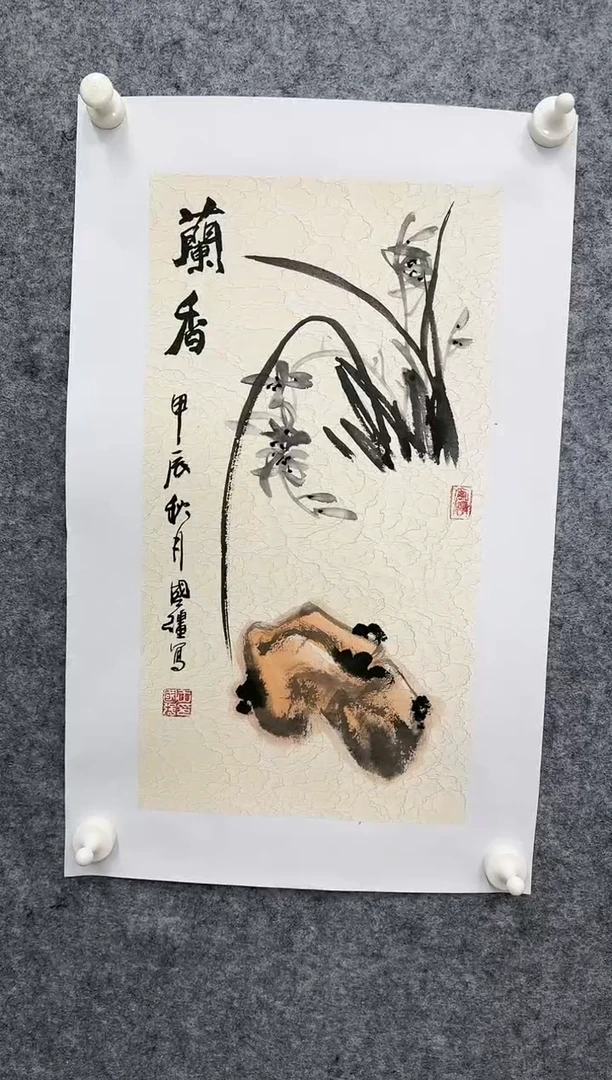 蘭香
甲辰秋月國疆寫